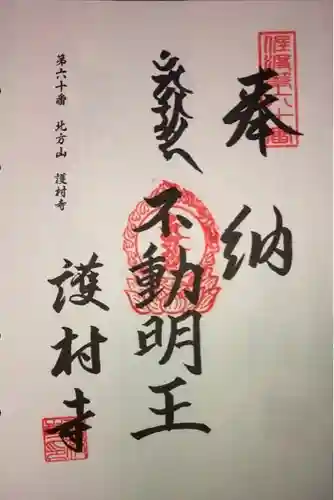 奉納
不動明王
護村寺
第六十番 北方山 護村寺